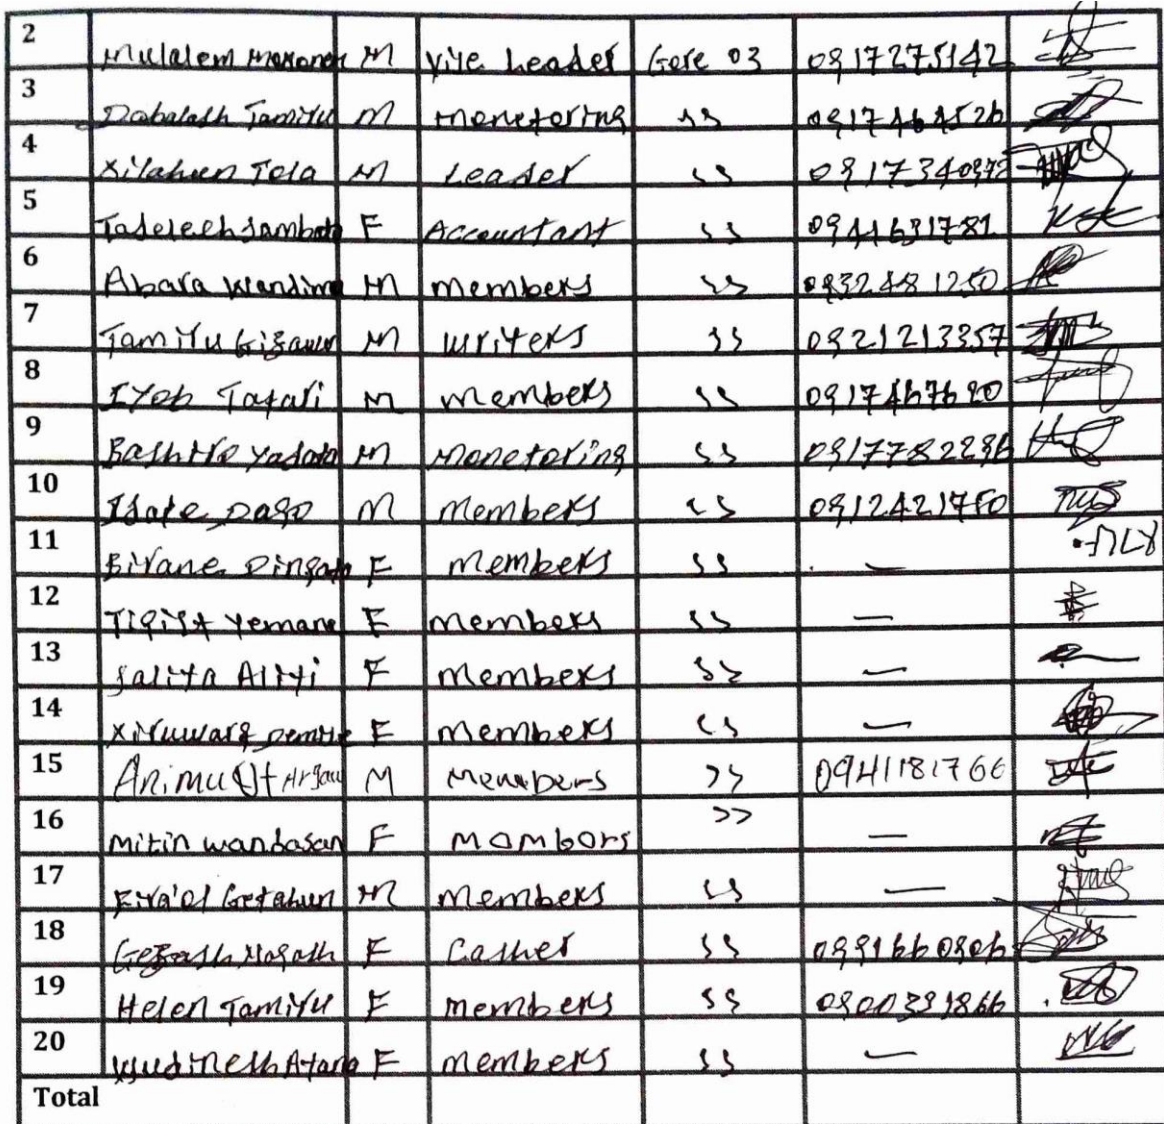 2 Mulalem Mekonen M Vise Leader Gore 03 0917275142
3 Dabalash Tamiru M Monetering ʼʼ 0917464526
4 Xilahun Tola M Leader ʼʼ 0917340972
5 Taderech Sambata F Accountant ʼʼ 0941631781
6 Abara Wandimu M members ʼʼ 0932481250
7 Tamiru Gizawu M writers ʼʼ 0921213357
8 Iyob Tafari M members ʼʼ 0917467620
9 Bashiro Yadata M Monetoring ʼʼ 0917782296
10 Isate Dago M members ʼʼ 0912421750
11 Birane Dingata F members ʼʼ —
12 Tigist Yemane F members ʼʼ —
13 Salita Aliyi F members ʼʼ —
14 Xiruwarq Demise F members ʼʼ —
15 Animut Argaw M Members >> 0941181766
16 mitin wandasan F mambors >> —
17 Fira'ol Getahun M members ʼʼ —
18 Gezash Nagash F Casher ʼʼ 0991660906
19 Helen Tamiru F members ʼʼ 0900391866
20 Wudinesh Atara F members ʼʼ —
Total